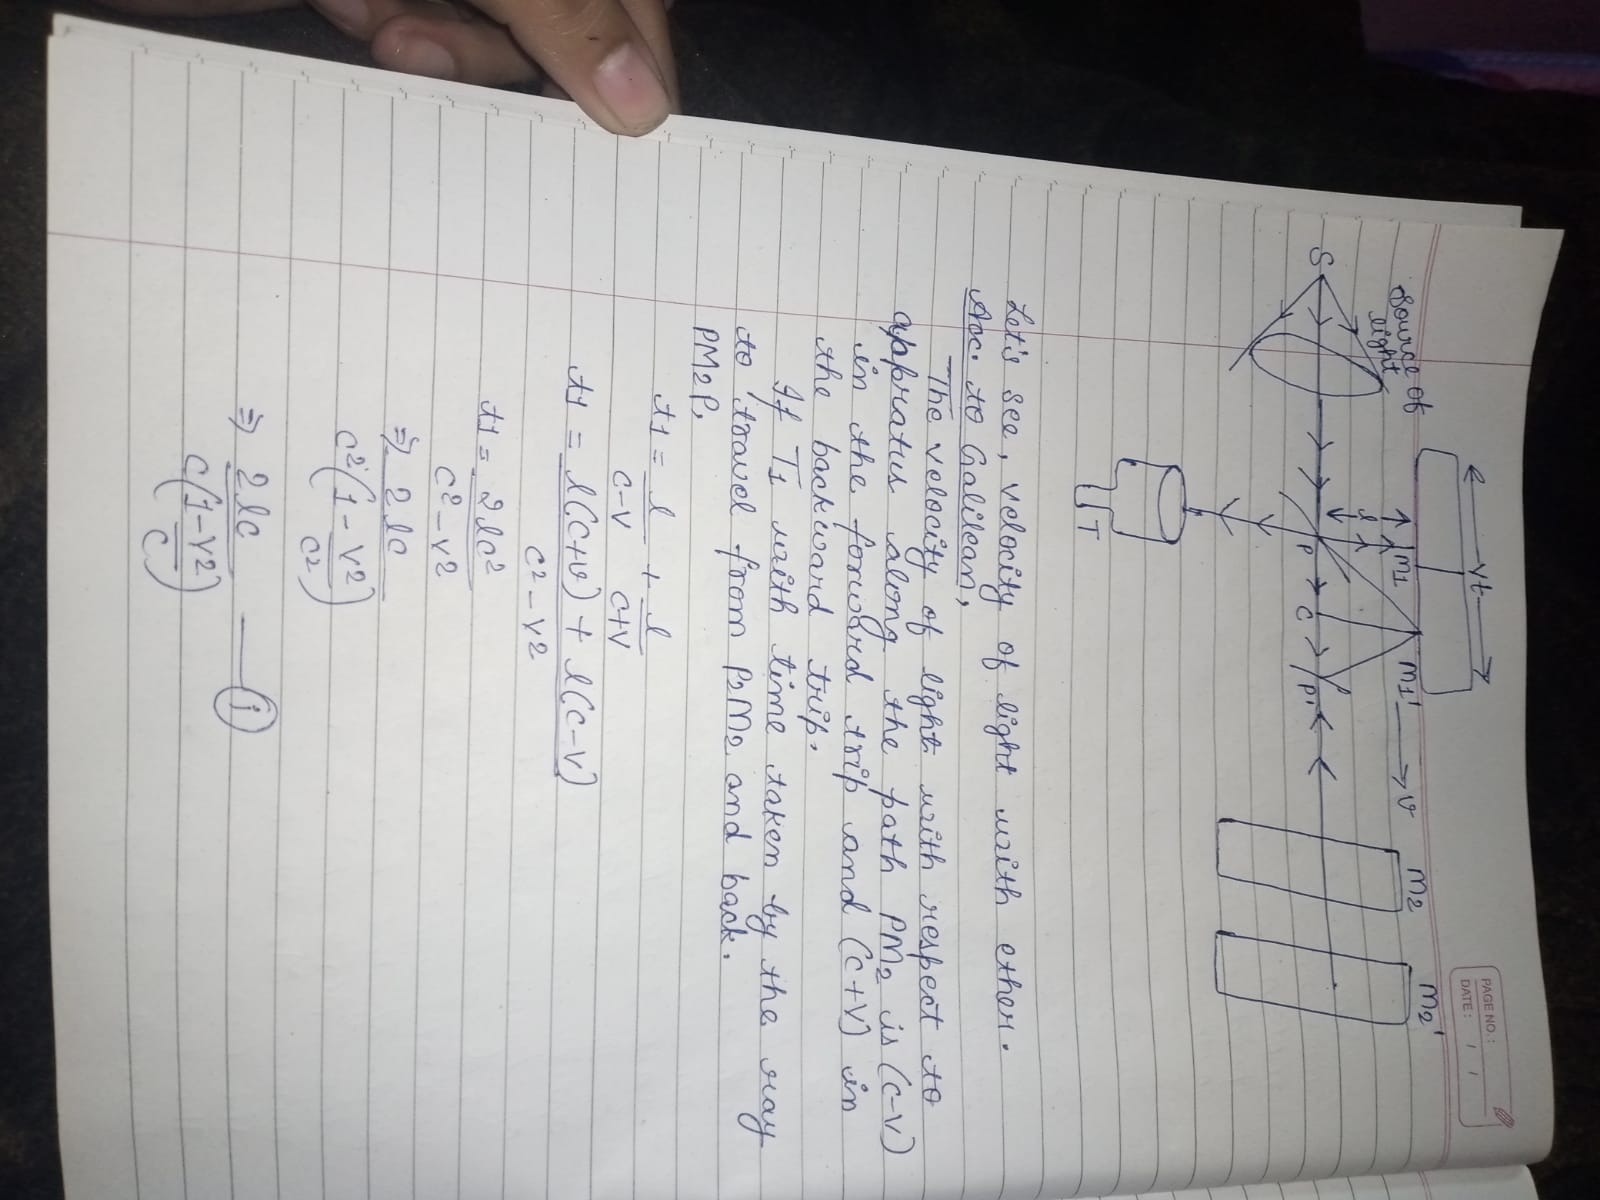 PAGE NO.:
DATE: / /
← vt →
Source of
light
M1
M1' → v
M2
M2'
d
S
P
C
P'
T
Let's see, velocity of light with ether.
Acc. to Galilean,
The velocity of light with respect to
appratus along the path PM2 is (c-v)
in the forward trip and (c+v) in
the backward trip.
If T1 with time taken by the ray
to travel from P2M2 and back.
PM2P,
t1 = l/c-v + l/c+v
t1 = l(c+v) + l(c-v)/c² - v²
t1 = 2lc²/c² - v²
⇒ 2lc/c²(1 - v²/c²)
⇒ 2lc/c(1-v²/c) — (i)